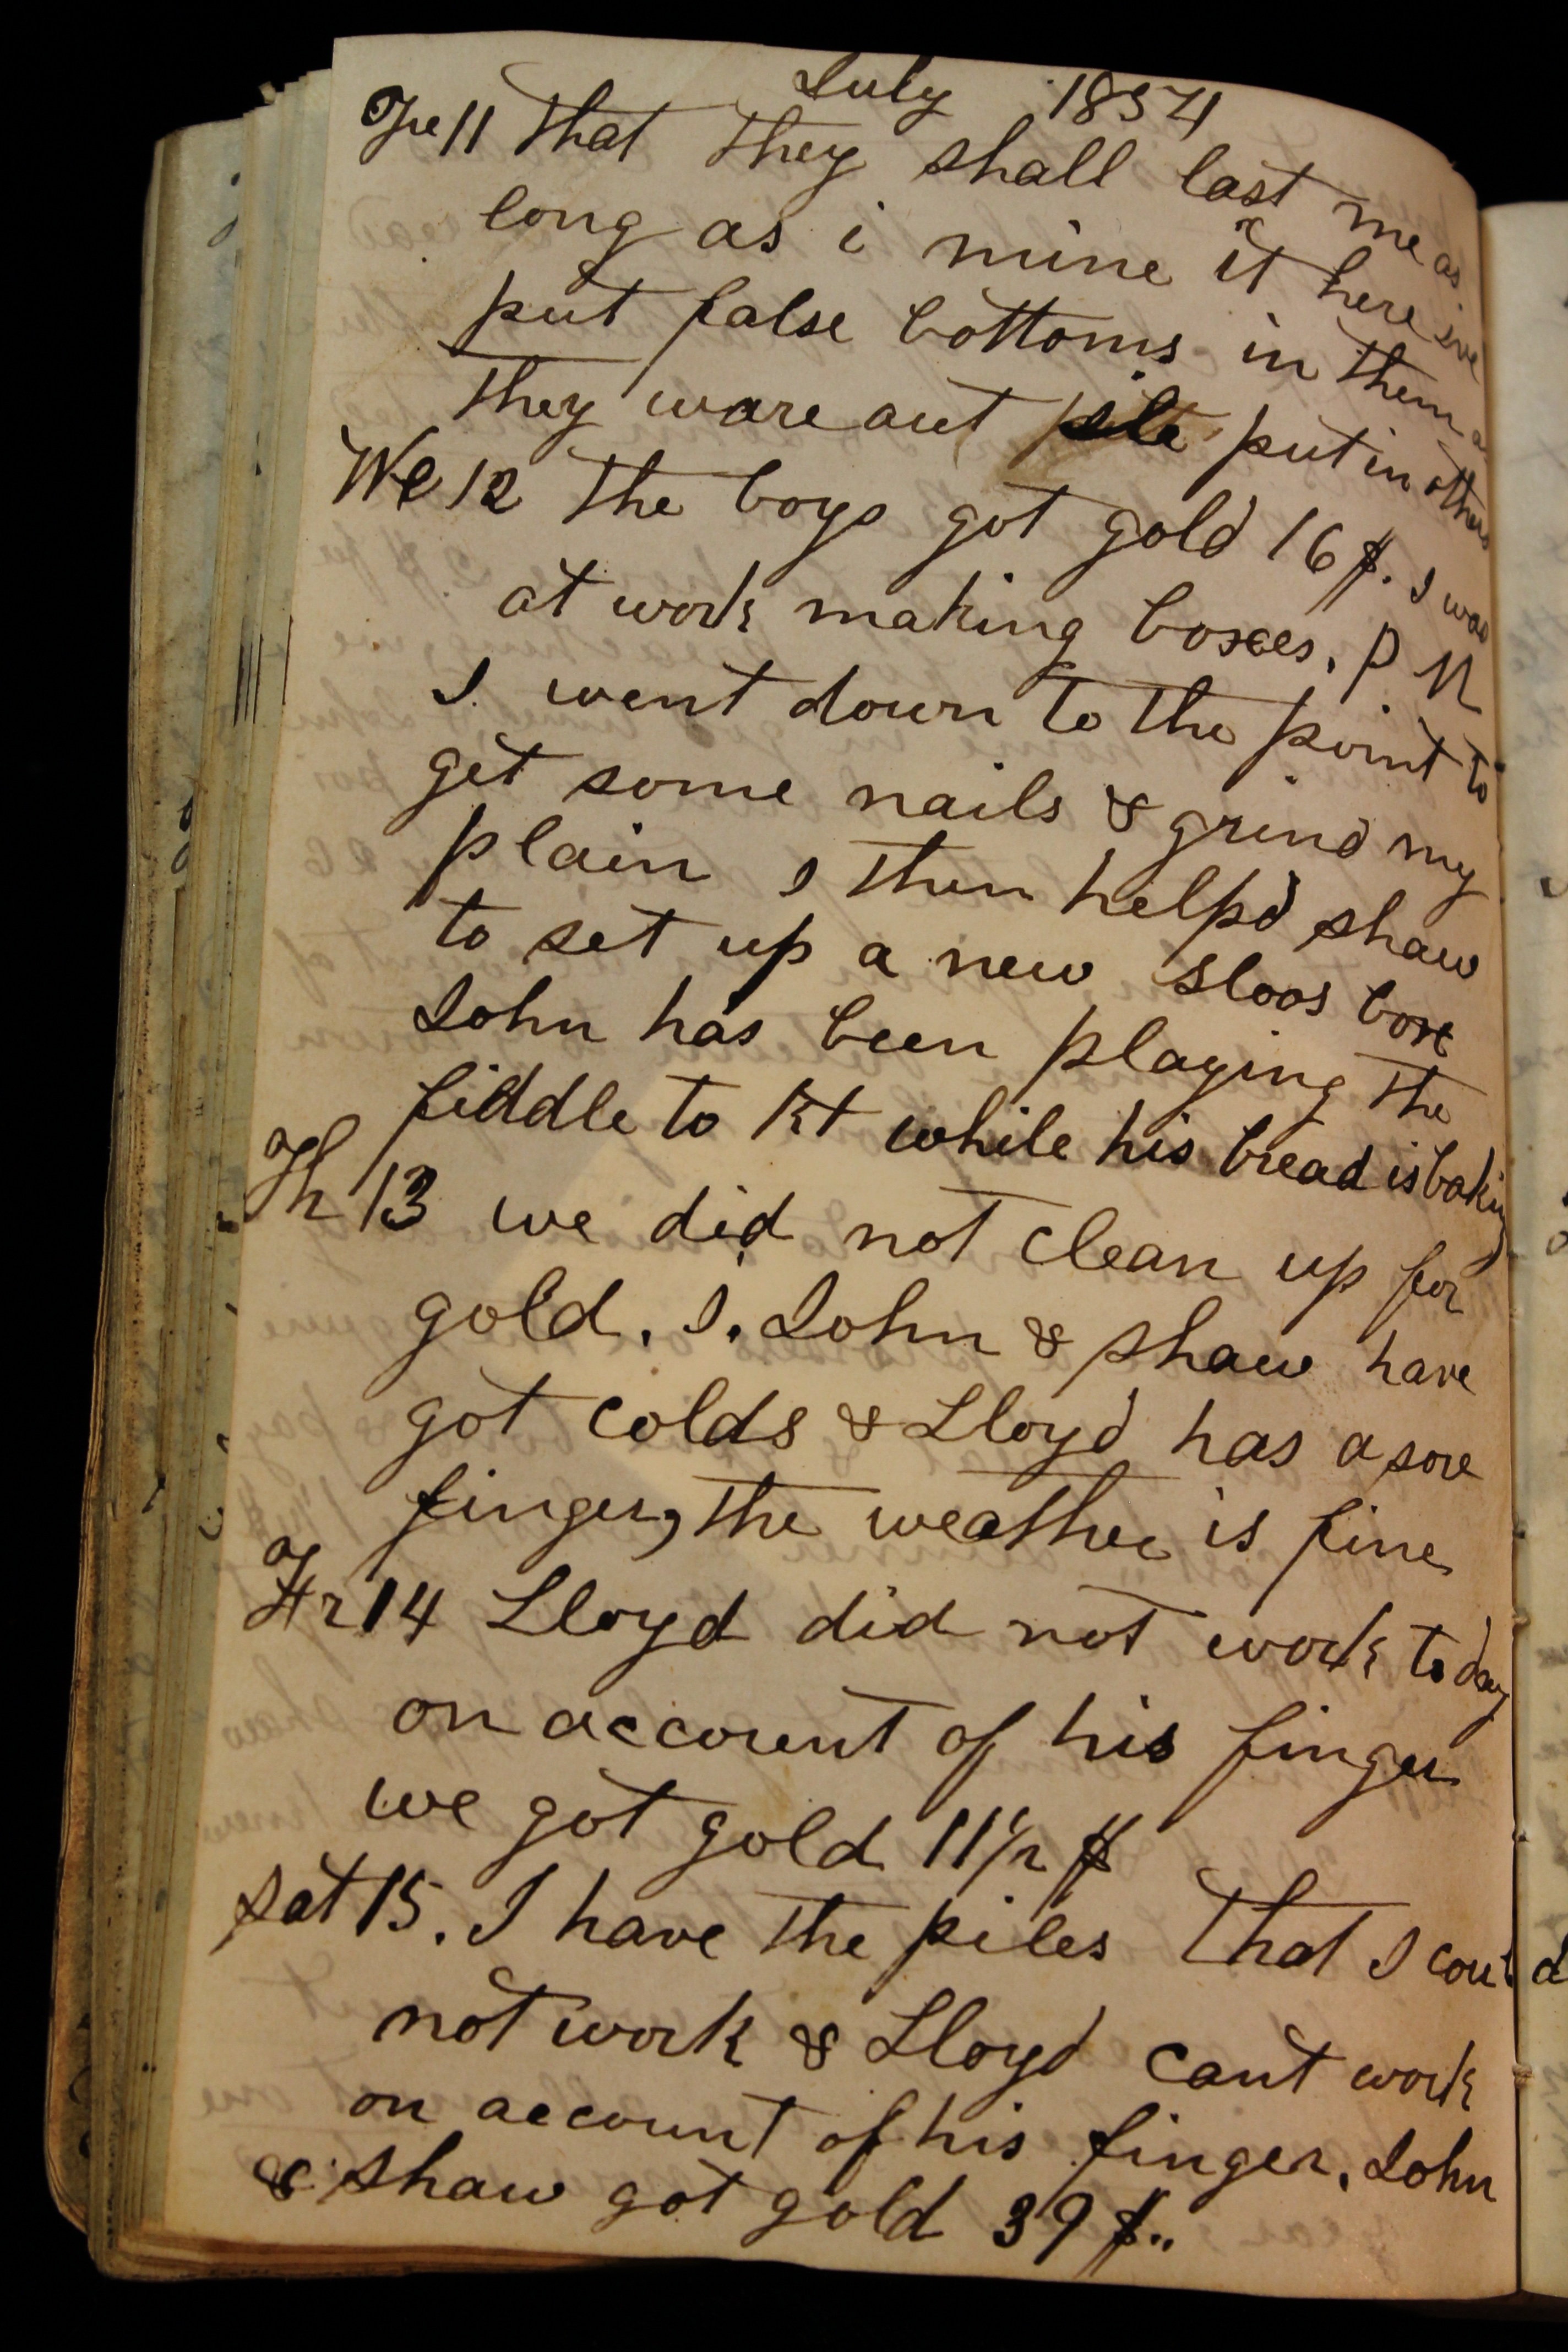 July 1854
Tue 11 that they shall last me as
long as i mine it here ive
put false bottoms in them as
they ware out ile put in others
We 12 the boys got gold 16 $. I was
at work making boxes. P M
I went down to the point to
get some nails & grind my
plain I then helpd shaw
to set up a new sloos box
John has been playing the
fiddle to Kt while his bread is baking
Th 13 we did not clean up for
gold. I. John & shaw have
got colds & Lloyd has a sore
finger, the weather is fine
Fr 14 Lloyd did not work to day
on account of his finger
we got gold 11 1/2 $
Sat 15. I have the piles that I could
not work & Lloyd cant work
on account of his finger. John
& shaw got gold 39 $..